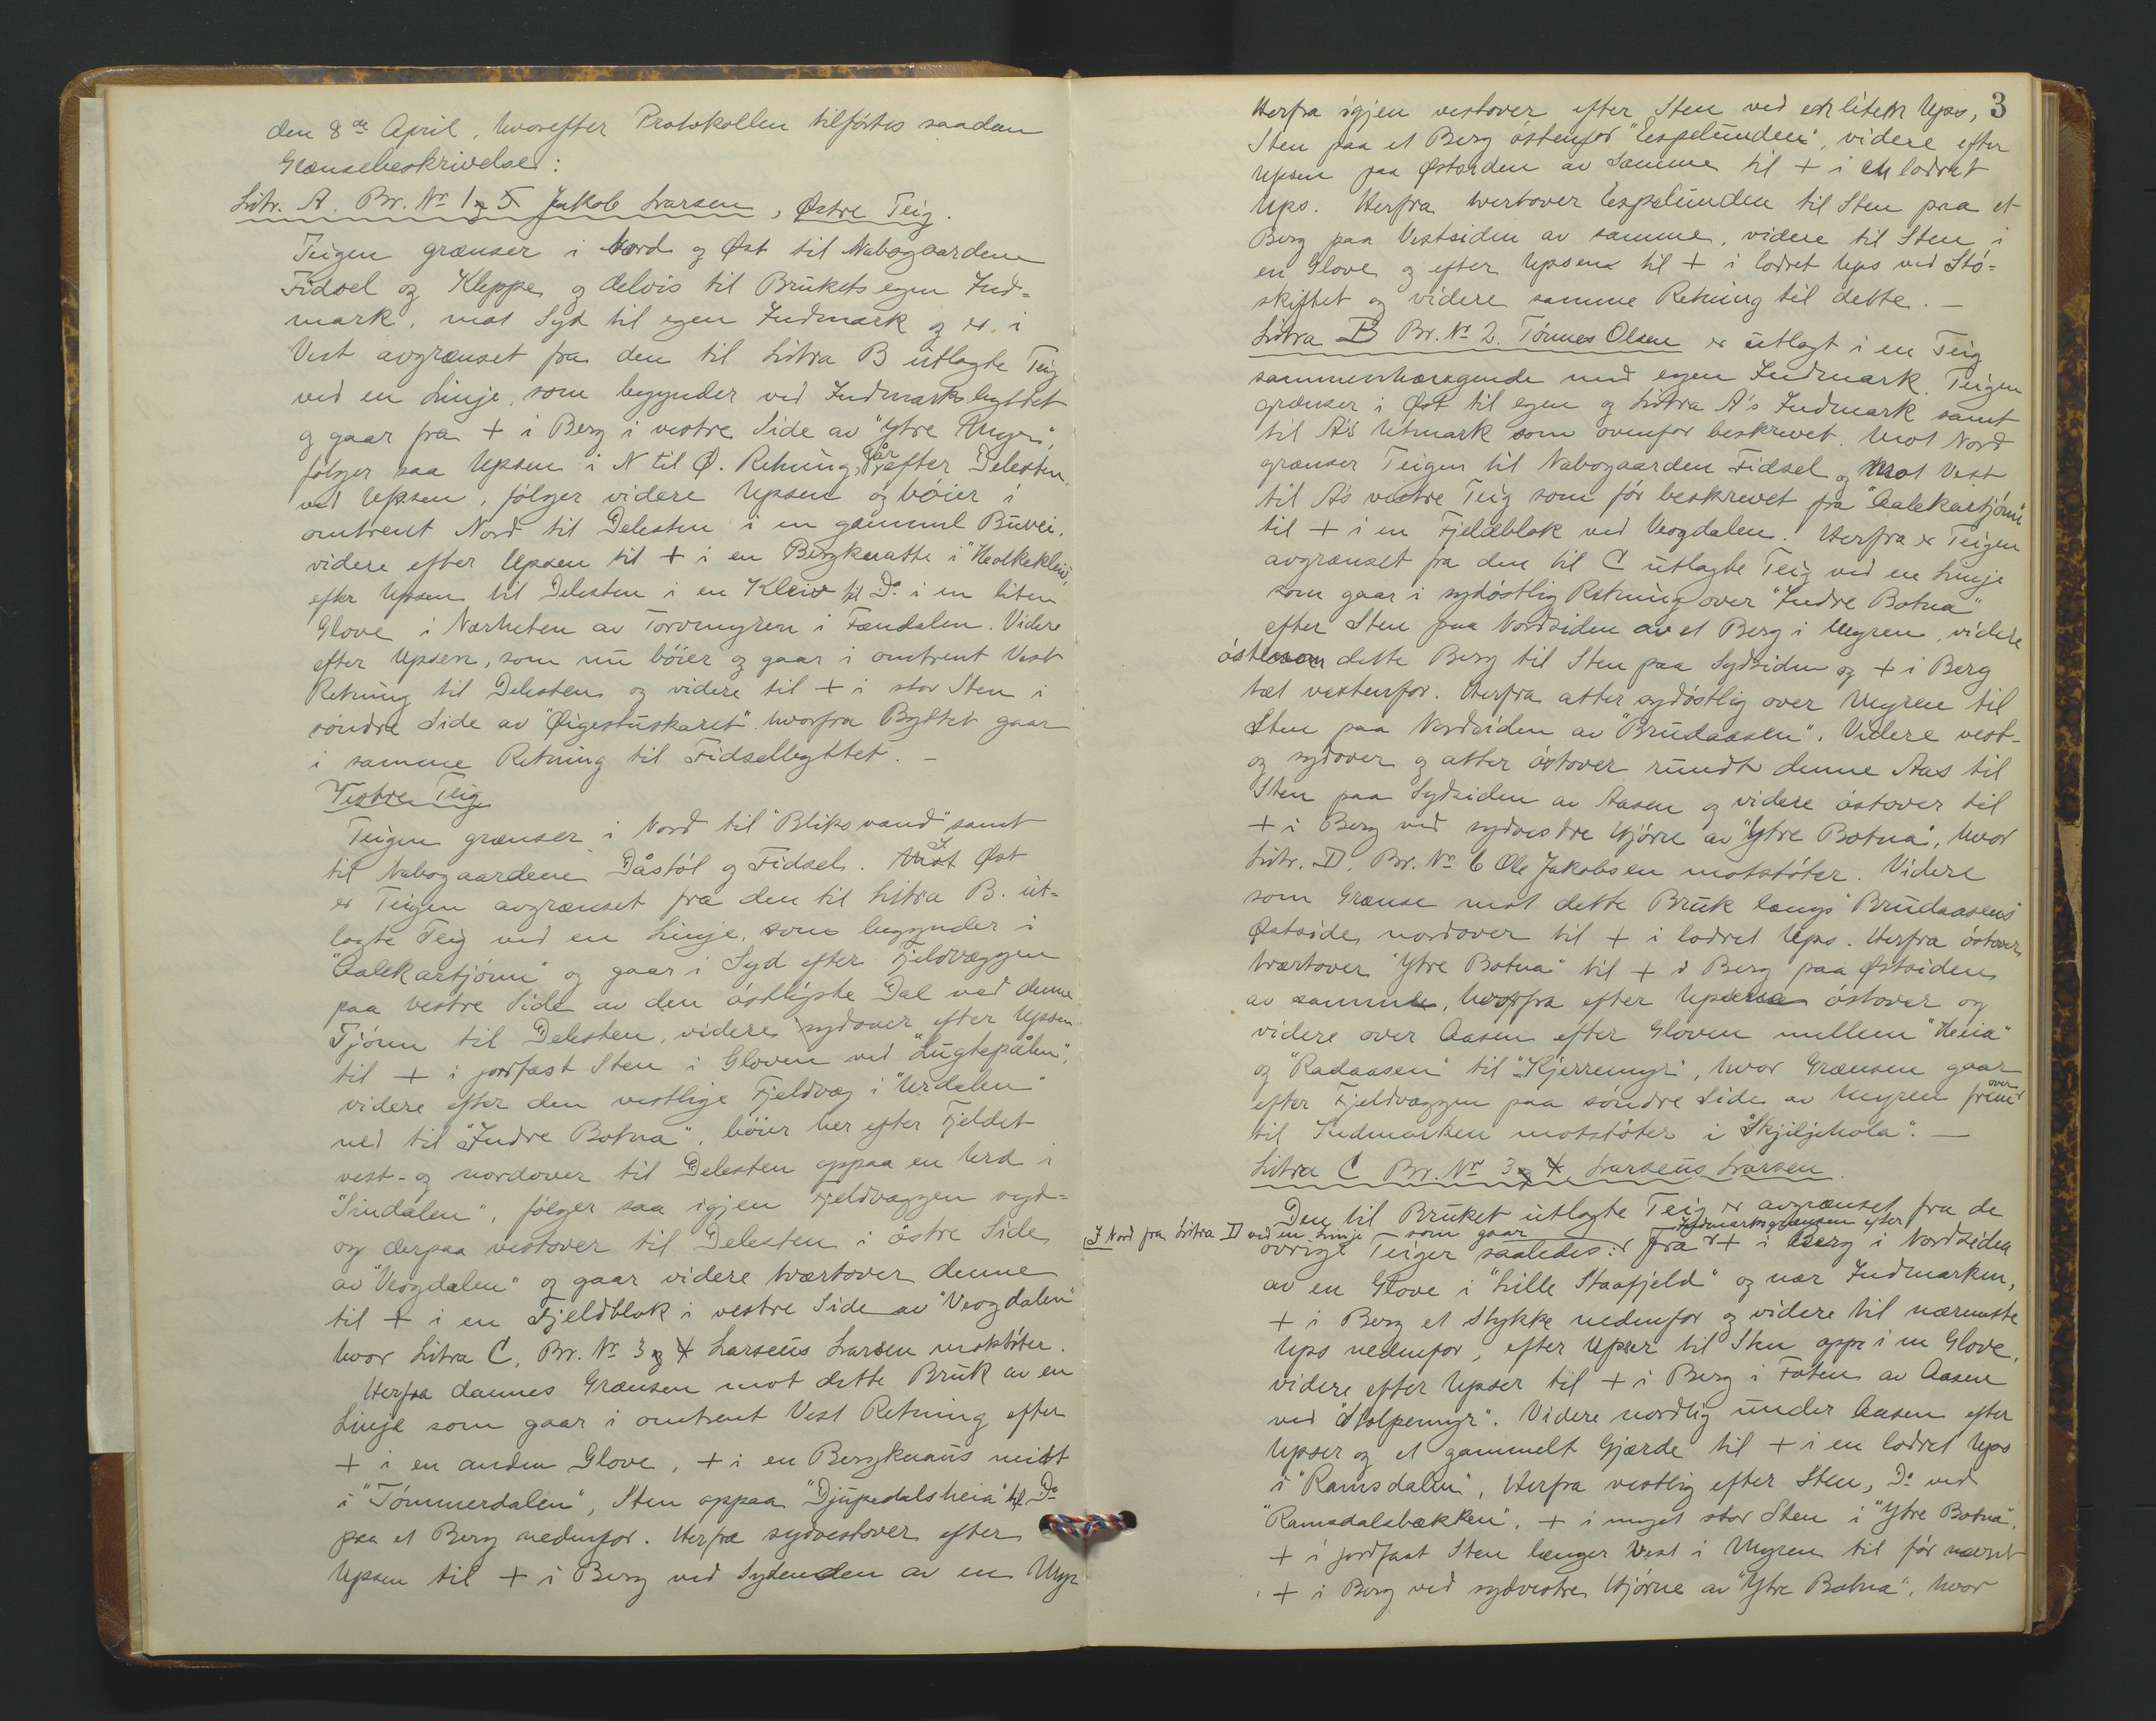 den 8de April, hvorefter Protokollen tilførtes saadan
Grænsebeskrivelse:
Litr. A. Br. No 1 og 5 Jakob Larsen, Østre Teig.
Teigen grænser i Nord og Øst til Nabogaardene
Fidsel og Kleppe og delvis til Brukets egen Ind-
mark, mot Syd til egen Indmark og er i
Vest avgrænset fra den til Litra B utlagte Teig
ved en Linje, som begynder ved Indmarksbyttet
og gaar fra + i Berg i vestre Side av "Ytre Myr",
følger saa Upsen i N til Ø. Retning, går efter Delesten
ved Upsen, følger videre Upsen og bøier i
omtrent Nord til Delesten i en gammel Buvei,
videre efter Upsen til + i en Bergknatte i
efter Upsen til Delesten i en Kleiv til Do i en liten
Glove i Nærheten av Torvmyren i Fændalen. Videre
efter Upsen, som nu bøier og gaar i omtrent Vest
Retning til Delesten og videre til + i stor Sten i
søndre Side av "Øigestuskaret" hvorfra Byttet gaar
i samme Retning til Fidselbyttet. –
Vestre Teig
Teigen grænser i Nord til "Bliksvand" samt
til Nabogaardene Dåstøl og Fidsel. I Øst
er Teigen avgrænset fra den til Litra B. ut-
lagte Teig ved en Linje, som begynder i
"Aalekartjønn" og gaar i Syd efter Fjeldvæggen
paa vestre Side av den østligste Dal ved denne
Tjønn til Delesten, videre sydover efter Upsen
til + i jordfast Sten i Gloven ved "Lugtepålen",
videre efter den vestlige Fjeldvæg i "Urdalen"
ned til "Indre Botna", bøier her efter Fjeldet
vest- og nordover til Delesten oppaa en Urd i
"Sindalen", følger saa igjen Fjeldvæggen syd-
og derpaa vestover til Delesten i østre Side
av "Veogdalen" og gaar videre tværtover denne
til + i en Fjeldblok i vestre Side av "Veogdalen"
hvor Litra C, Br. No 3 og 4 Larseus Larsen motstøter.
Herfra dannes Grænsen mot dette Bruk av en
Linje som gaar i omtrent Vest Retning efter
+ i en anden Glove, + i en Bergknaus midt
i "Tømmerdalen", Sten oppaa "Djupedalsheia" til Do
paa et Berg nedenfor. Herfra sydvestover efter
Upsen til + i Berg ved Sydenden av en Myr
3
Herfra igjen vestover efter Sten ved en liten Ups,
Sten paa et Berg østenfor "Espelunden", videre efter
Upsen paa Østsiden av samme til + i en lodret
Ups. Herfra tvertover Espelunden til Sten paa et
Berg paa Vestsiden av samme, videre til Sten i
en Glove og efter Upsene til + i lodret Ups ved Stø-
skiftet og videre samme Retning til dette. –
Litra B Br. No 2. Tønnes Olsen er utlagt i en Teig
sammenhængende med egen Indmark. Teigen
grænser i Øst til egen og Litra A's Indmark samt
til A's Utmark som ovenfor beskrevet. Mot Nord
grænser Teigen til Nabogaarden Fidsel og Mot Vest
til A's vestre Teig som før beskrevet fra "Aalekartjønn"
til + i en Fjeldblok ved Veogdalen. Herfra er Teigen
avgrænset fra den til C utlagte Teig ved en Linje
som gaar i sydøstlig Retning over "Indre Botna"
efter Sten paa Nordsiden av et Berg i Myren, videre
østenom dette Berg til Sten paa Sydsiden og + i Berg
tæt vestenfor. Herfra atter sydøstlig over Myren til
Sten paa Nordsiden av "Brudaasen". Videre vest-
og sydover og atter østover rundt denne Aas til
Sten paa Sydsiden av Aasen og videre østover til
+ i Berg ved sydvestre Hjørne av "Ytre Botna", hvor
Litr. D, Br. No 6 Ole Jakobsen motstøter. Videre
som Grænse mot dette Bruk langs "Brudaasens"
Østside nordover til + i lodret Ups. Herfra østover
tværtover "Ytre Botna" til + i Berg paa Østsiden
av samme, hvorfra efter Upsene østover og
videre over Aasen efter Gloven mellem "Heiia"
og "Radaasen" til "Kjerremyr", hvor Grænsen gaar
efter Fjeldvæggen paa søndre Side av Myren fremover
til Indmarken motstøter i "Skjiljehola". –
Litra C Br. No 3 og 4 Larseus Larsen.
Den til Bruket utlagte Teig er avgrænset fra de
I Nord fra Litra D ved en Linje som gaar Indmarksgrænsen efter
øvrige Teiger saaledes: fra + i Berg i Nordsiden
av en Glove i "Lille Staafjeld" og nær Indmarken,
+ i Berg et Stykke nedenfor og videre til nærmeste
Ups nedenfor, efter Upser til Sten oppe i en Glove,
videre efter Upser til + i Berg i Foten av Aasen
ved "Stolpemyr". Videre nordlig under Aasen efter
Upser og et gammelt Gjærde til + i en lodret Ups
i "Ramsdalen", Herfra vestlig efter Sten, Do ved
"Ramsdalsbækken", + i meget stor Sten i "Ytre Botna",
+ i jordfast Sten længer Vest i Myren til før nævnt
+ i Berg ved sydvestre Hjørne av "Ytre Botna", hvor